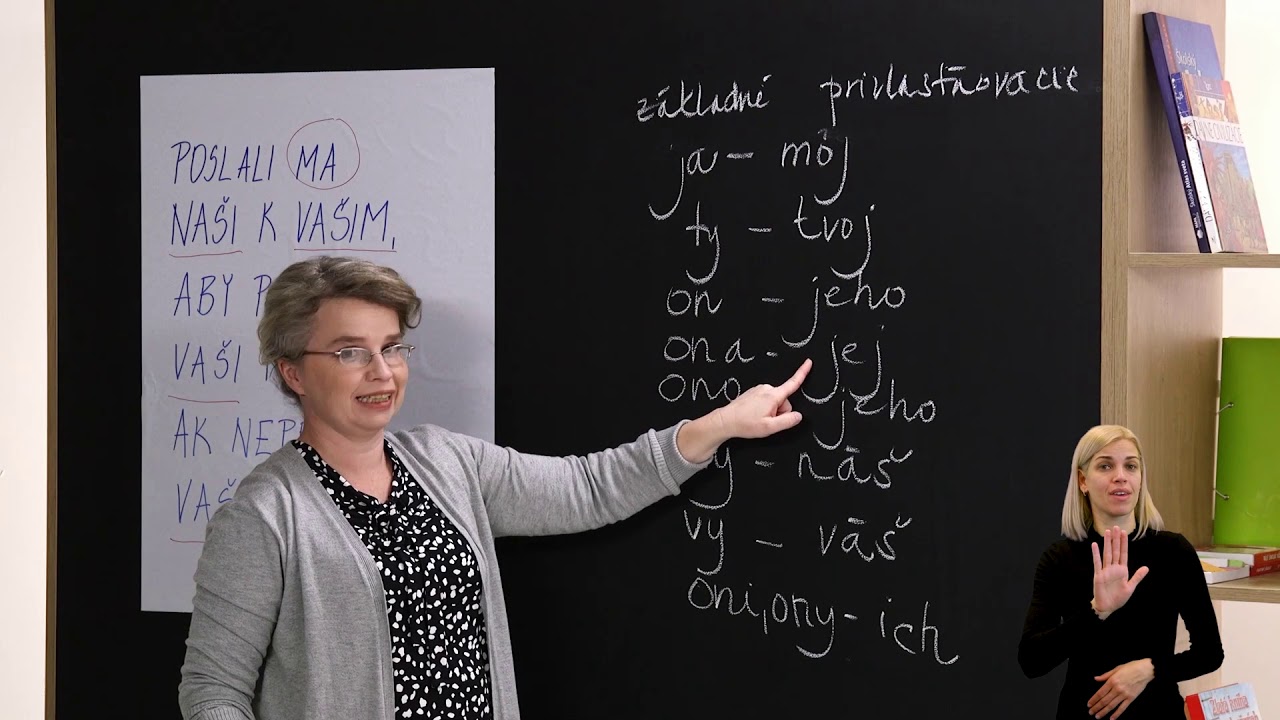 POSLALI MA
NAŠI K VAŠIM,
ABY
VAŠI
AK
základné privlastňovacie
ja - môj
ty - tvoj
on - jeho
ona - jej
ono jeho
náš
vy - váš
oni, ony - ich